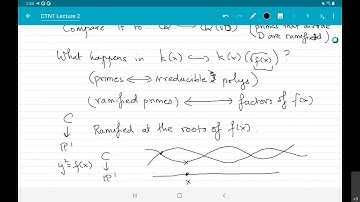 CTNT Lecture 2
Compare it to
(primes that divide
D are ramified)
What happens in k(x) ↔ k(x)(√f(x)) ?
(primes ↔ irreducible polys)
(ramified primes) ↔ factors of f(x)
C
↓
P¹
Ramified at the roots of f(x).
y²=f(x)
C
↓
P¹
x
x